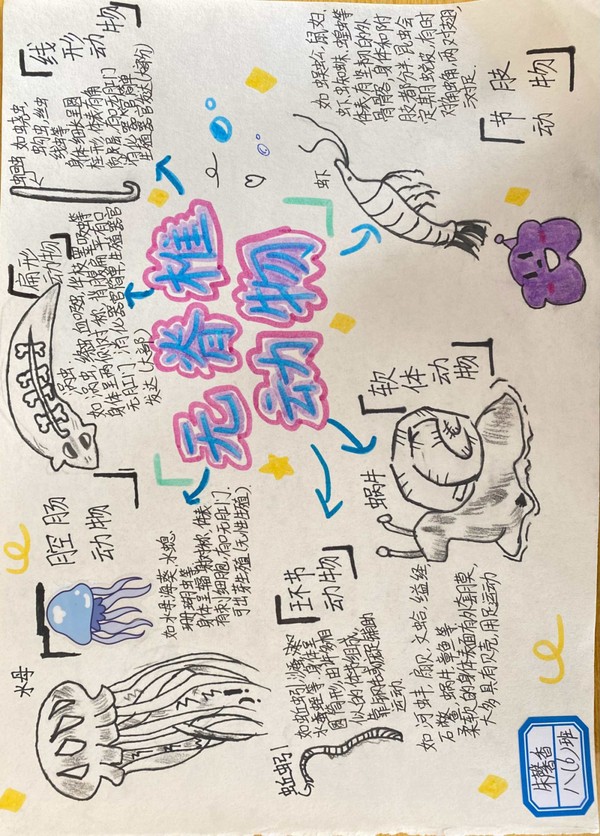 无脊椎
动物
腔肠
动物
水母
如水母,海葵,水螅,
珊瑚虫等
身体呈辐射对称,体表
有刺细胞,有口无肛门.
可出芽生殖(无性生殖)
扁形
动物
涡虫
如涡虫,绦虫,血吸虫,华枝睾吸虫等
身体呈两侧对称,背腹扁平,有口
无肛门,消化器官简单,生殖器官
发达(大部)
线形
动物
蛔虫
如蛲虫
蛔虫,丝虫
线虫等
身体细长,呈圆
柱形,体表有角
质层,有口有肛门
消化器官简单
生殖器官发达(大部分)
环节
动物
蚯蚓
如蚯蚓,沙蚕
水蛭等,身体呈
圆筒形,由许多相
似的体节组成,
靠刚毛或疣足辅助
运动.
软体
动物
蜗牛
如河蚌,扇贝,文蛤,缢蛏
石鳖,蜗牛,章鱼等
柔软的身体表面有外套膜,
大多具有贝壳,用足运动
节肢
动物
虾
如蜈蚣,鼠妇,
虾,蜘蛛,蝗虫等
体表有坚韧的外
骨骼,身体和附
肢都分节,昆虫会
定期蜕皮,有时
对触角,两对翅,
三对足.
八(6)班